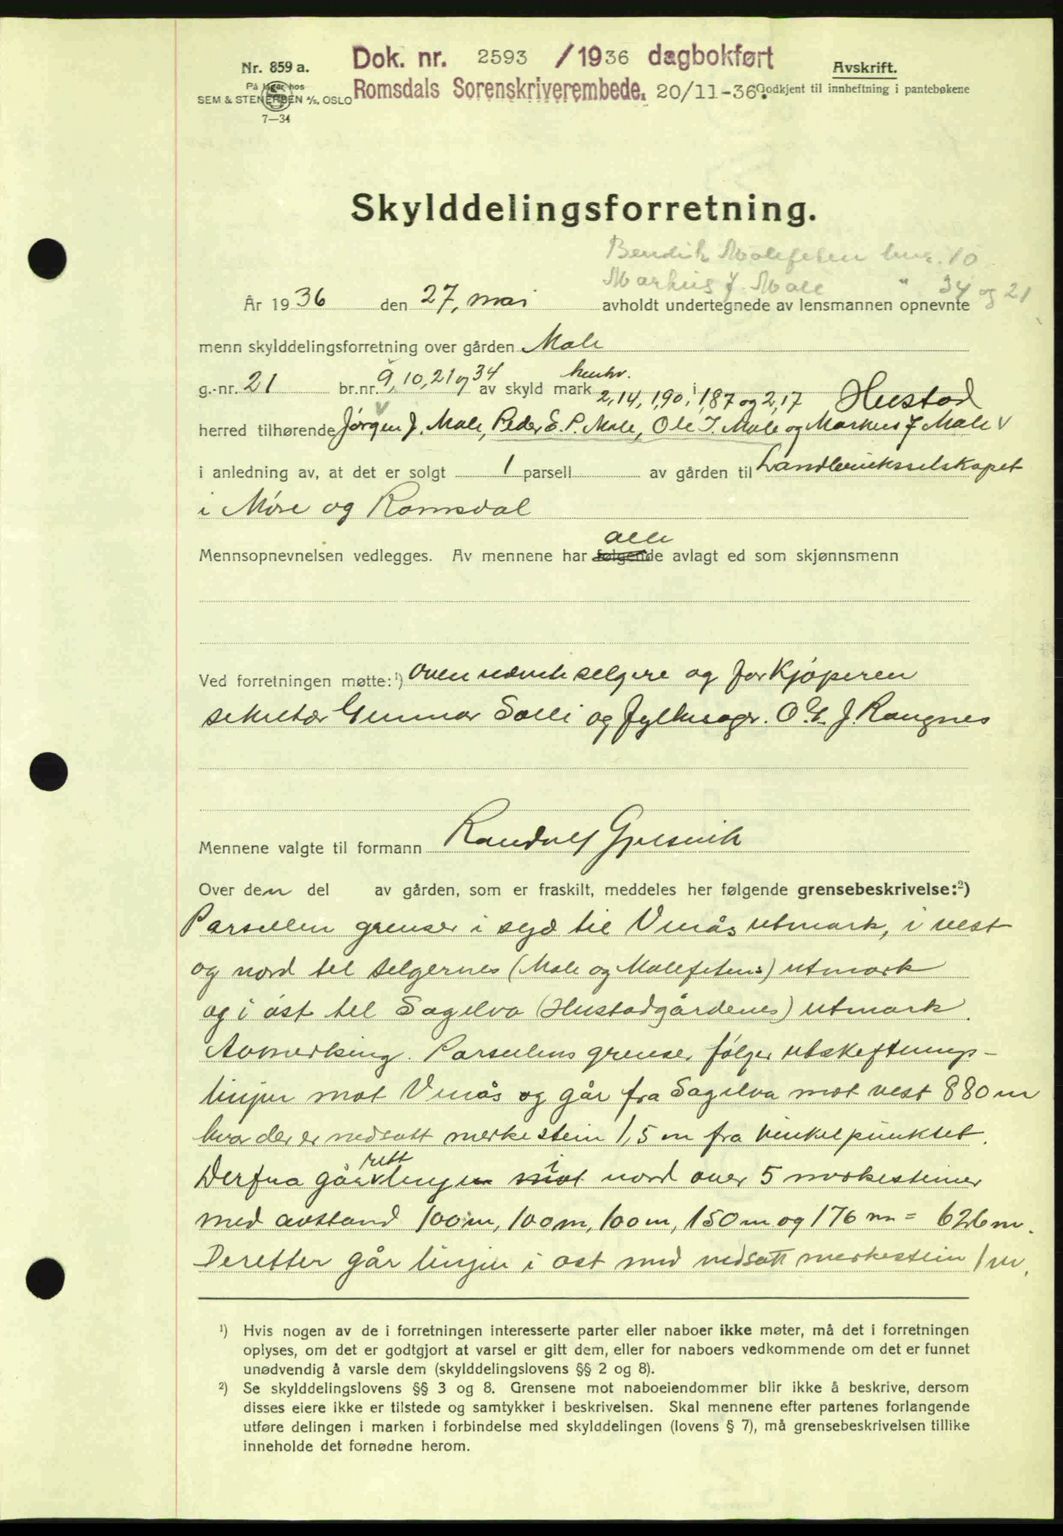 Nr. 859 a.
På lager hos
SEM & STENERSEN A/S, OSLO
7—34
Dok. nr. 2593 /1936 dagbokført
Romsdals Sorenskriverembede. 20/11-36.
Avskrift.
Godkjent til innheftning i pantebøkene
Skylddelingsforretning.
Bendik Malefeten bnr. 10
Markus J. Male " 34 og 21
År 1936 den 27, mai avholdt undertegnede av lensmannen opnevnte
menn skylddelingsforretning over gården Male
g.-nr. 21 br.nr. 9, 10, 21 og 34 av skyld mark henhv. 2,14, 1,90, 1,87 og 2,17 i Hustad
herred tilhørende Jørgen J. Male, Peder E. P. Male, Ole J. Male og Markus J Male v
i anledning av, at det er solgt 1 parsell av gården til Landbruksselskapet
i Møre og Romsdal
Mennsopnevnelsen vedlegges. Av mennene har følgende alle avlagt ed som skjønnsmenn
Ved forretningen møtte:¹) ovennevnte selgere og for kjøperen
sekretær Gunnar Salli og fylkesagr. O. J. Rangnes
Mennene valgte til formann Randulf Gjelsvik
Over den del av gården, som er fraskilt, meddeles her følgende grensebeskrivelse:²)
Parsellen grenser i syd til Vinås utmark, i vest
og nord til selgernes (Male og Malefetens) utmark
og i øst til Sagelva (Hustadgårdenes) utmark.
Anmerkning. Parsellens grenser følger utskiftnings-
linjen mot Vinås og går fra Sagelva mot vest 880 m
hvor der er nedsatt merkestein 1,5 m fra vinkelpunktet.
Derfra går rett linjen mot i nord over 5 merkesteiner
med avstand 100 m, 100 m, 100 m, 150 m og 176 m = 626 m.
Deretter går linjen i øst med nedsatt merkestein 1 m.
¹) Hvis nogen av de i forretningen interesserte parter eller naboer ikke møter, må det i forretningen
oplyses, om det er godtgjort at varsel er gitt dem, eller for naboers vedkommende om det er funnet
unødvendig å varsle dem (skylddelingslovens §§ 2 og 8).
²) Se skylddelingslovens §§ 3 og 8. Grensene mot naboeiendommer blir ikke å beskrive, dersom
disses eiere ikke er tilstede og samtykker i beskrivelsen. Skal mennene efter partenes forlangende
utføre delingen i marken i forbindelse med skylddelingen (lovens § 7), må grensebeskrivelsen tillike
inneholde det fornødne herom.